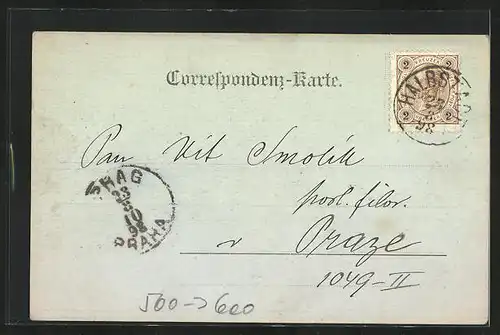 Correspondenz-Karte.
2 KREUZER 2
2 2
HALBSTADT
23
98
Pan Vít Smolík
posl. filos.
v Praze
1049-II
PRAG
23
5
10
98
PRAHA
500->600